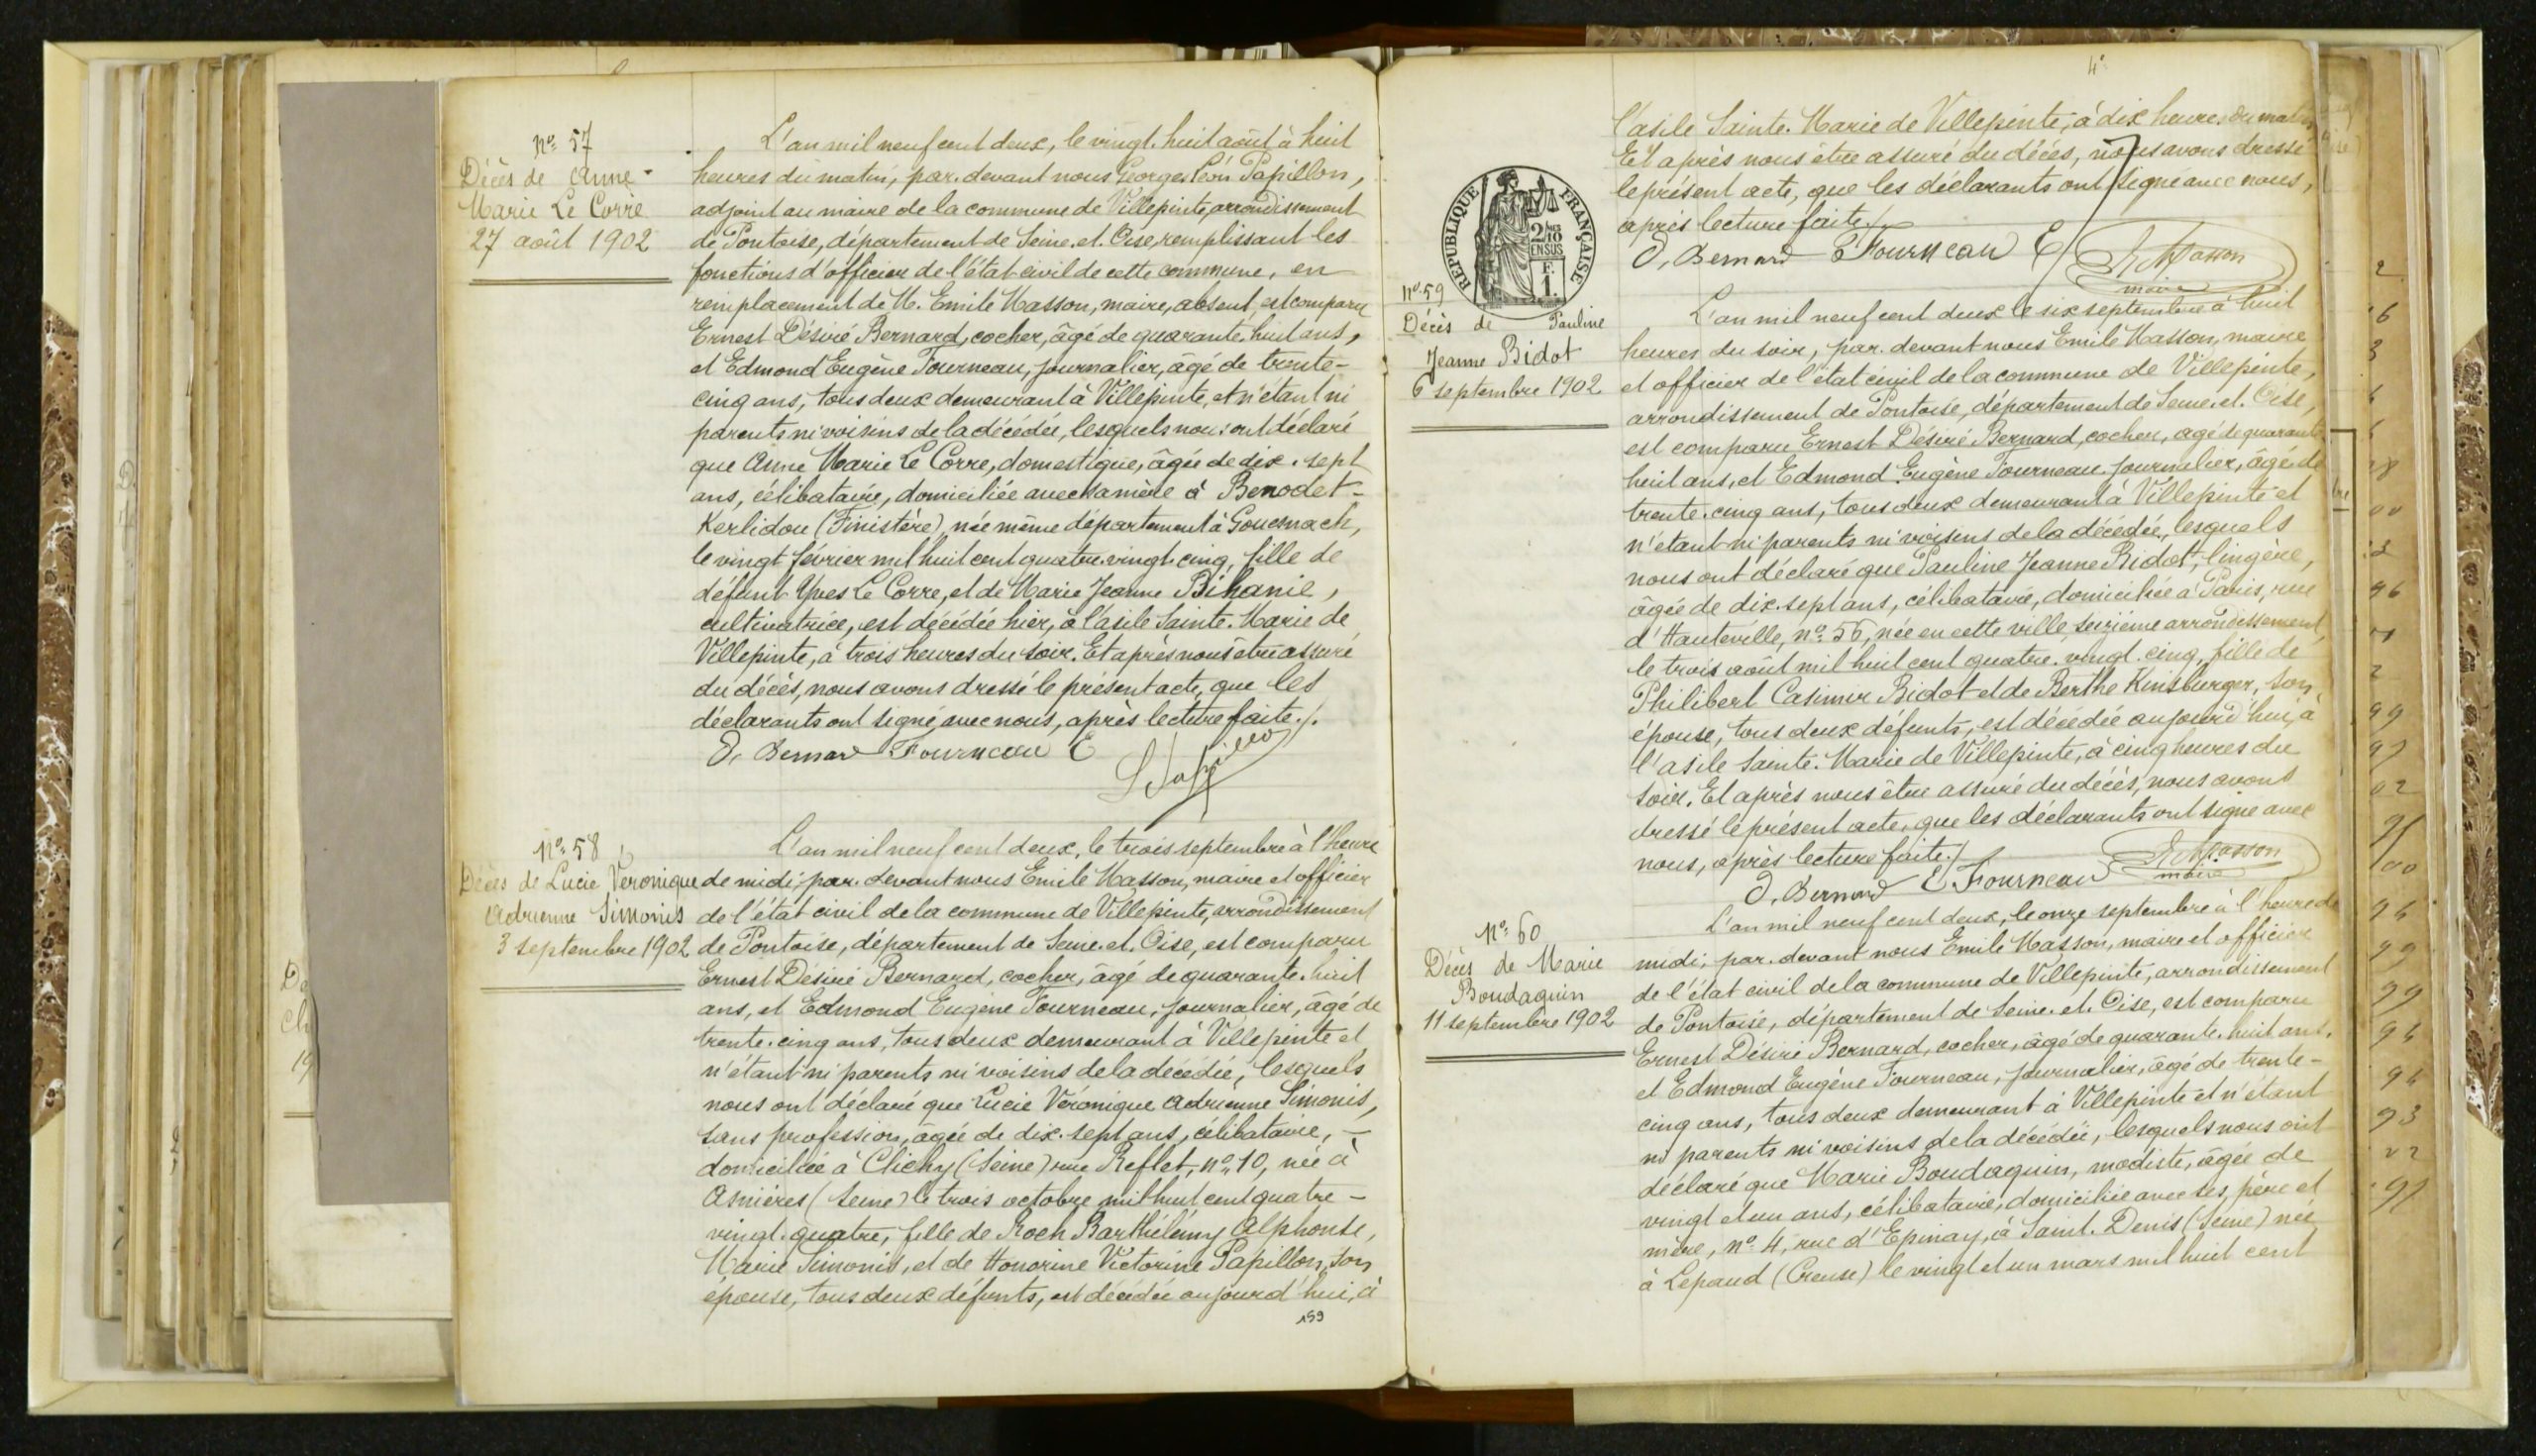 Nº 57
Décès de Anne-
Marie Le Corre
27 août 1902
L'an mil neuf cent deux, le vingt-huit août à huit
heures du matin, par-devant nous Georges Léon Papillon,
adjoint au maire de la commune de Villepinte, arrondissement
de Pontoise, département de Seine-et-Oise, remplissant les
fonctions d'officier de l'état-civil de cette commune, en
remplacement de M. Emile Masson, maire, absent, est comparu
Ernest Désiré Bernard, cocher, âgé de quarante-huit ans,
et Edmond Eugène Fourneau, journalier, âgé de trente-
cinq ans, tous deux demeurant à Villepinte, et n'étant ni
parents ni voisins de la décédée, lesquels nous ont déclaré
que Anne Marie Le Corre, domestique, âgée de dix-sept
ans, célibataire, domiciliée avec sa mère à Benodet-
Kerlidou (Finistère), née même département à Gouesnach,
le vingt février mil huit cent quatre-vingt-cinq, fille de
défunt Yves Le Corre, et de Marie Jeanne Bihanic,
cultivatrice, est décédée hier, à l'asile Sainte-Marie de
Villepinte, à trois heures du soir. Et après nous être assuré
du décès, nous avons dressé le présent acte, que les
déclarants ont signé avec nous, après lecture faite./.
D. Bernard Fourneau E
Nº 58
Décès de Lucie Veronique
Adrienne Simonis
3 septembre 1902
L'an mil neuf cent deux, le trois septembre à l'heure
de midi, par-devant nous Emile Masson, maire et officier
de l'état civil de la commune de Villepinte, arrondissement
de Pontoise, département de Seine-et-Oise, est comparu
Ernest Désiré Bernard, cocher, âgé de quarante-huit
ans, et Edmond Eugène Fourneau, journalier, âgé de
trente-cinq ans, tous deux demeurant à Villepinte et
n'étant ni parents ni voisins de la décédée, lesquels
nous ont déclaré que Lucie Véronique Adrienne Simonis,
sans profession, âgée de dix-sept ans, célibataire, -
domiciliée à Clichy (Seine) rue Reflet, nº 10, née à
Asnières (Seine) le trois octobre mil huit cent quatre-
vingt-quatre, fille de Roch Barthélémy Alphonse,
Marie Simonis, et de Honorine Victorine Papillon, son
épouse, tous deux défunts, est décédée aujourd'hui, à
159
l'asile Sainte-Marie de Villepinte, à dix heures du matin
Et après nous être assuré du décès, nous avons dressé
le présent acte, que les déclarants ont signé avec nous,
après lecture faite./.
D. Bernard Fourneau E
E Masson
maire
REPUBLIQUE FRANÇAISE
2/10
EN SUS
F.
1.
Nº 59
Décès de Pauline
Jeanne Bidot
6 septembre 1902
L'an mil neuf cent deux le six septembre à huit
heures du soir, par-devant nous Emile Masson, maire
et officier de l'état civil de la commune de Villepinte,
arrondissement de Pontoise, département de Seine-et-Oise,
est comparu Ernest Désiré Bernard, cocher, âgé de quarante
huit ans, et Edmond Eugène Fourneau, journalier, âgé de
trente-cinq ans, tous deux demeurant à Villepinte et
n'étant ni parents ni voisins de la décédée, lesquels
nous ont déclaré que Pauline Jeanne Bidot, lingère,
âgée de dix-sept ans, célibataire, domiciliée à Paris, rue
d'Hauteville, nº 56, née en cette ville, seizième arrondissement,
le trois août mil huit cent quatre-vingt-cinq, fille de
Philibert Casimir Bidot et de Berthe Kinsburger, son
épouse, tous deux défunts, est décédée aujourd'hui, à
l'asile Sainte-Marie de Villepinte, à cinq heures du
soir. Et après nous être assuré du décès, nous avons
dressé le présent acte, que les déclarants ont signé avec
nous, après lecture faite./.
D. Bernard E Fourneau
E Masson
maire
Nº 60
Décès de Marie
Boudaquin
11 septembre 1902
L'an mil neuf cent deux, le onze septembre à l'heure de
midi, par-devant nous Emile Masson, maire et officier
de l'état civil de la commune de Villepinte, arrondissement
de Pontoise, département de Seine-et-Oise, est comparu
Ernest Désiré Bernard, cocher, âgé de quarante-huit ans,
et Edmond Eugène Fourneau, journalier, âgé de trente-
cinq ans, tous deux demeurant à Villepinte et n'étant
ni parents ni voisins de la décédée, lesquels nous ont
déclaré que Marie Boudaquin, modiste, âgée de
vingt et un ans, célibataire, domiciliée avec ses père et
mère, nº 4, rue d'Epinay, à Saint-Denis (Seine) née
à Lépaud (Creuse) le vingt et un mars mil huit cent